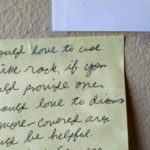 ould love to use
ime rock, if you
ould provide one.
ould love to discuss
more covered are
uld be helpful.